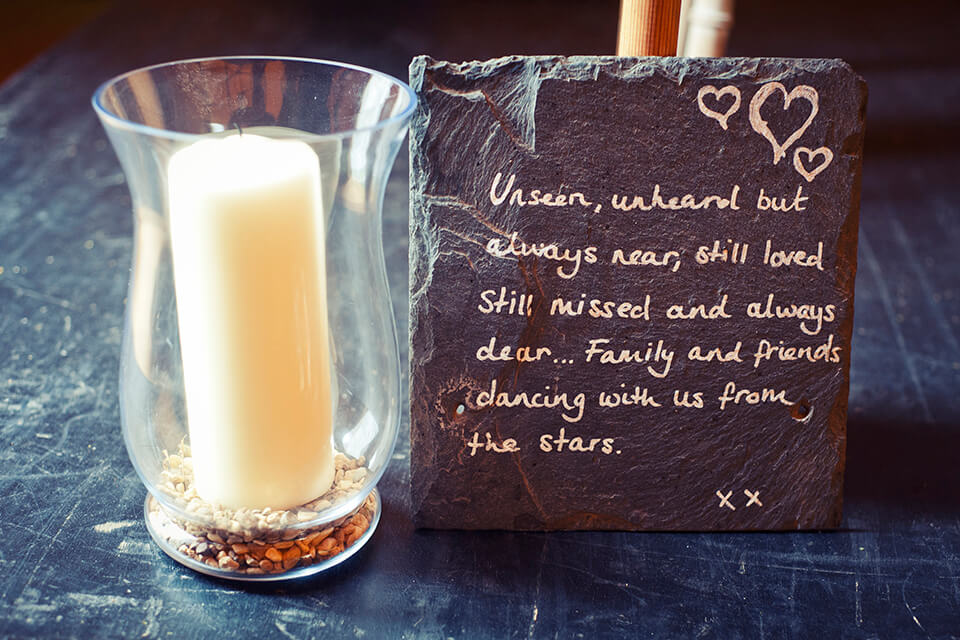 Unseen, unheard but
always near, still loved
Still missed and always
dear... Family and friends
dancing with us from
the stars.
x x